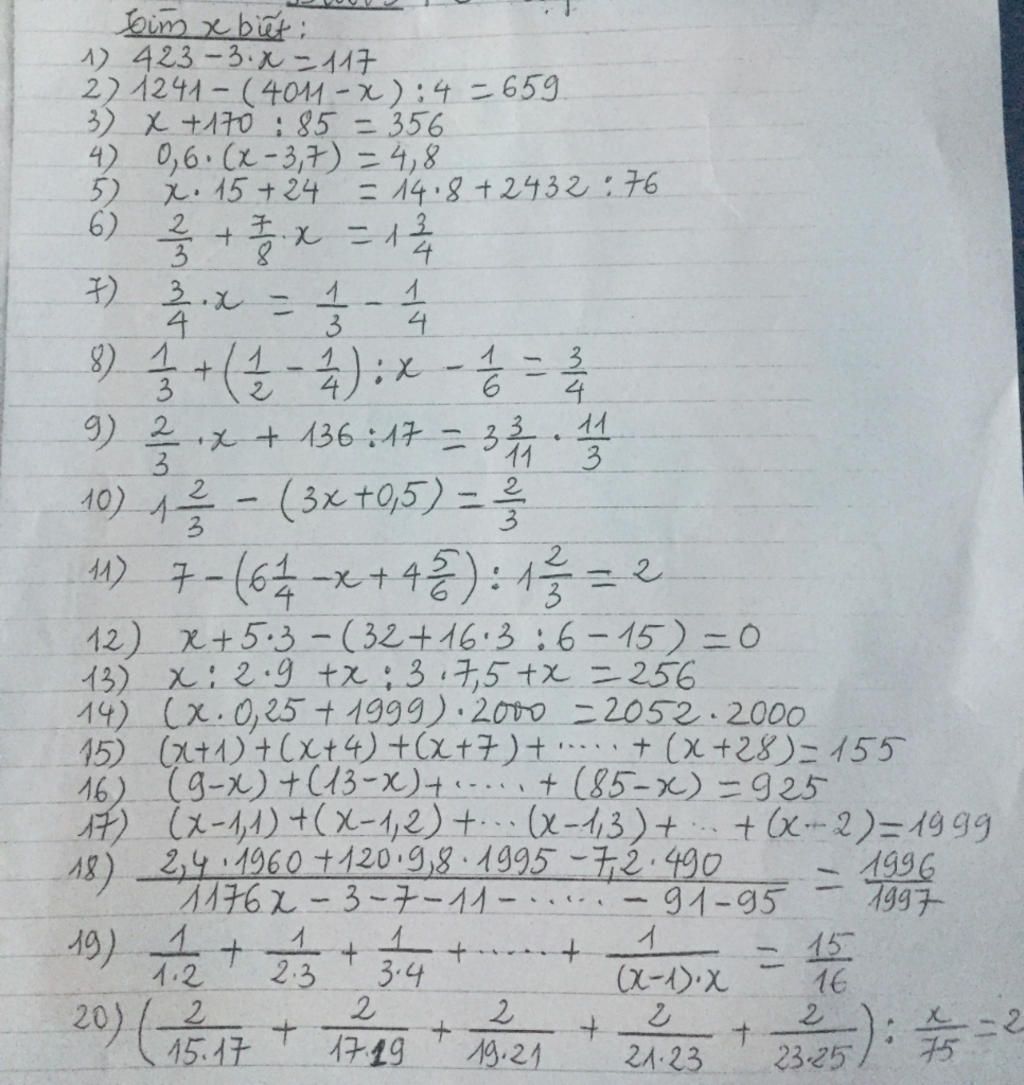 Tìm x biết:
1) 423 - 3·x = 117
2) 1241 - (4011 - x) : 4 = 659
3) x + 170 : 85 = 356
4) 0,6·(x - 3,7) = 4,8
5) x·15 + 24 = 14·8 + 2432 : 76
6) 2/3 + 7/8·x = 1 3/4
7) 3/4·x = 1/3 - 1/4
8) 1/3 + (1/2 - 1/4) : x - 1/6 = 3/4
9) 2/3·x + 136 : 17 = 3 3/11 · 11/3
10) 1 2/3 - (3x + 0,5) = 2/3
11) 7 - (6 1/4 - x + 4 5/6) : 1 2/3 = 2
12) x + 5·3 - (32 + 16·3 : 6 - 15) = 0
13) x : 2·9 + x : 3·7,5 + x = 256
14) (x·0,25 + 1999)·2000 = 2052·2000
15) (x+1) + (x+4) + (x+7) + ..... + (x+28) = 155
16) (9-x) + (13-x) + ...... + (85-x) = 925
17) (x-1,1) + (x-1,2) + ... (x-1,3) + ... + (x-2) = 1999
18) (2,4·1960 + 120·9,8·1995 - 7,2·490) / (1176x - 3 - 7 - 11 - ...... - 91 - 95) = 1996/1997
19) 1/(1·2) + 1/(2·3) + 1/(3·4) + ...... + 1/((x-1)·x) = 15/16
20) (2/(15·17) + 2/(17·19) + 2/(19·21) + 2/(21·23) + 2/(23·25)) : x/75 = 2